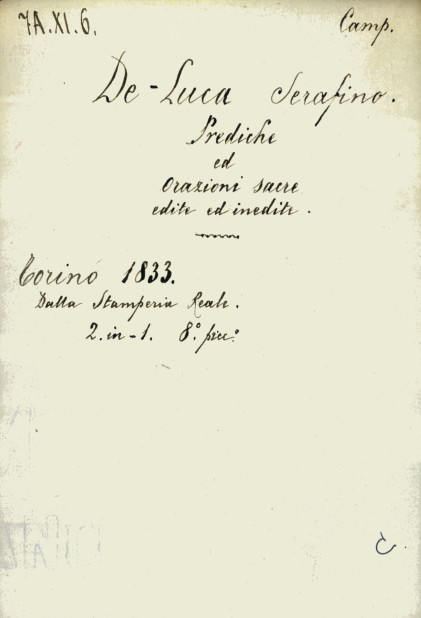 7A.XI.6.
Camp.
De-Luca Serafino.
Prediche
ed
Orazioni sacre
edite ed inedite.
Torino 1833.
Dalla Stamperia Reale.
2. in-1. 8.° picc.°